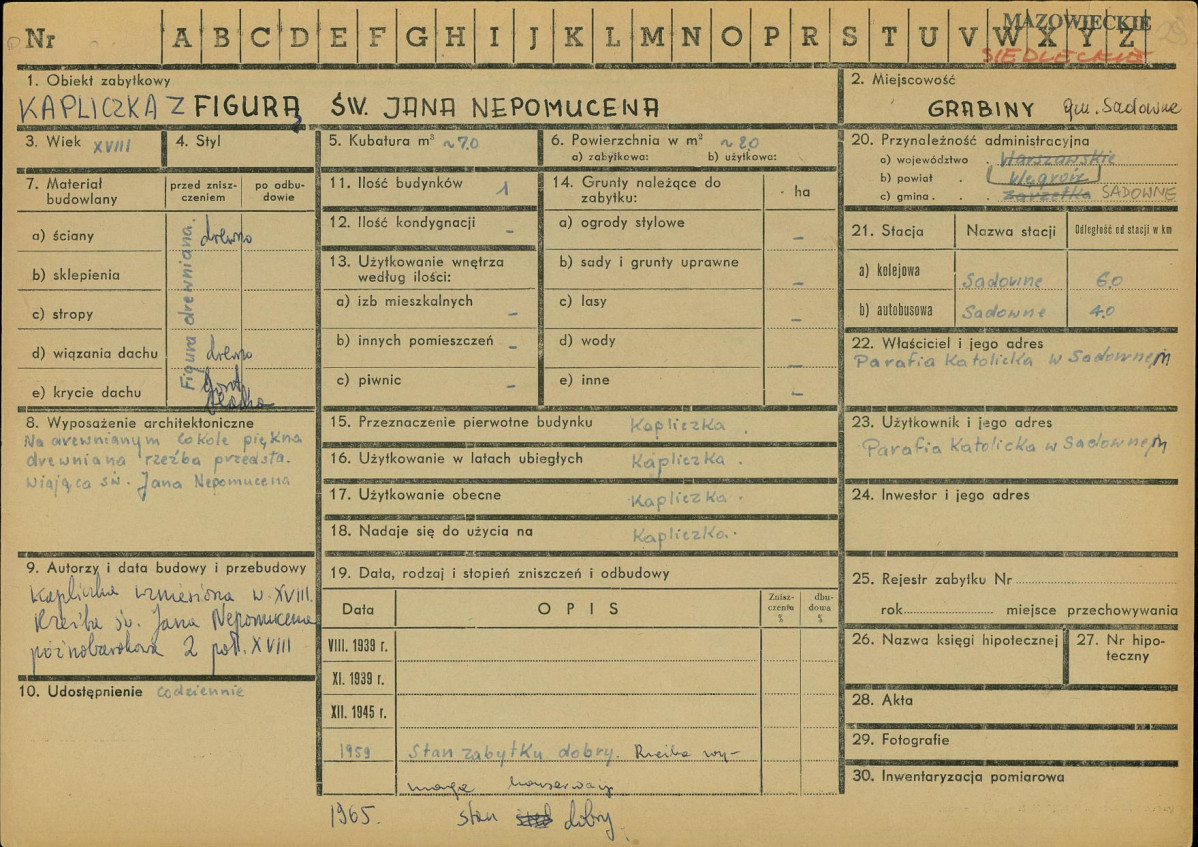 Nr A B C D E F G H I J K L M N O P R S T U V W X Y Z
MAZOWIECKIE
SIEDLECKIE
1. Obiekt zabytkowy
KAPLICZKA Z FIGURĄ ŚW. JANA NEPOMUCENA
2. Miejscowość
GRABINY gm. Sadowne
3. Wiek XVIII
4. Styl
5. Kubatura m³ ~7.0
6. Powierzchnia w m² ~2.0
a) zabytkowa: b) użytkowa:
7. Materiał budowlany
przed zniszczeniem
po odbudowie
Figura drewniana.
a) ściany drewno
b) sklepienia
c) stropy
d) wiązania dachu drewno
e) krycie dachu
blacha
8. Wyposażenie architektoniczne
Na drewnianym cokole piękna
drewniana rzeźba przedsta.
wiająca św. Jana Nepomucena
9. Autorzy i data budowy i przebudowy
Kapliczka wzniesiona w. XVIII.
Rzeźba św. Jana Nepomucena
późnobarokowa 2 poł. XVIII
10. Udostępnienie codziennie
11. Ilość budynków 1
12. Ilość kondygnacji –
13. Użytkowanie wnętrza
według ilości:
a) izb mieszkalnych –
b) innych pomieszczeń –
c) piwnic –
14. Grunty należące do
zabytku:
ha
a) ogrody stylowe –
b) sady i grunty uprawne –
c) lasy –
d) wody –
e) inne –
15. Przeznaczenie pierwotne budynku Kapliczka
16. Użytkowanie w latach ubiegłych Kapliczka .
17. Użytkowanie obecne Kapliczka .
18. Nadaje się do użycia na Kapliczka.
19. Data, rodzaj i stopień zniszczeń i odbudowy
Data OPIS Zniszczenia % dbudowa %
VIII. 1939 r.
XI. 1939 r.
XII. 1945 r.
1959 Stan zabytku dobry. Rzeźba wy–
maga konserwacji
1965. stan dobry.
20. Przynależność administracyjna
a) województwo . Warszawskie
b) powiat . Węgrów
c) gmina . . SADOWNE
21. Stacja Nazwa stacji Odległość od stacji w km
a) kolejowa Sadowne 6.0
b) autobusowa Sadowne 4.0
22. Właściciel i jego adres
Parafia Katolicka w Sadownem
23. Użytkownik i jego adres
Parafia Katolicka w Sadownem
24. Inwestor i jego adres
25. Rejestr zabytku Nr
rok miejsce przechowywania
26. Nazwa księgi hipotecznej
27. Nr hipoteczny
28. Akta
29. Fotografie
30. Inwentaryzacja pomiarowa